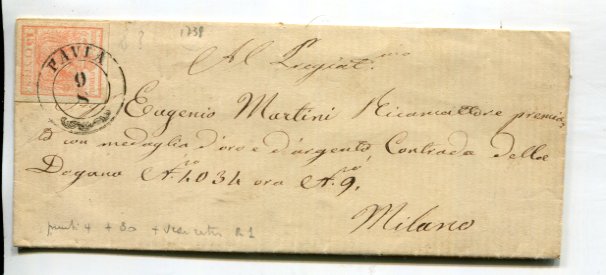 1738
15 CENTES
PAVIA
9
8
Al Pregiat.mo
Eugenio Martini Ricamattore premia
to con medaglia d'oro e d'argento, Contrada della
Dogana N.ro 4034 ora N.ro 9.
Milano
punti 4 + 30 R1